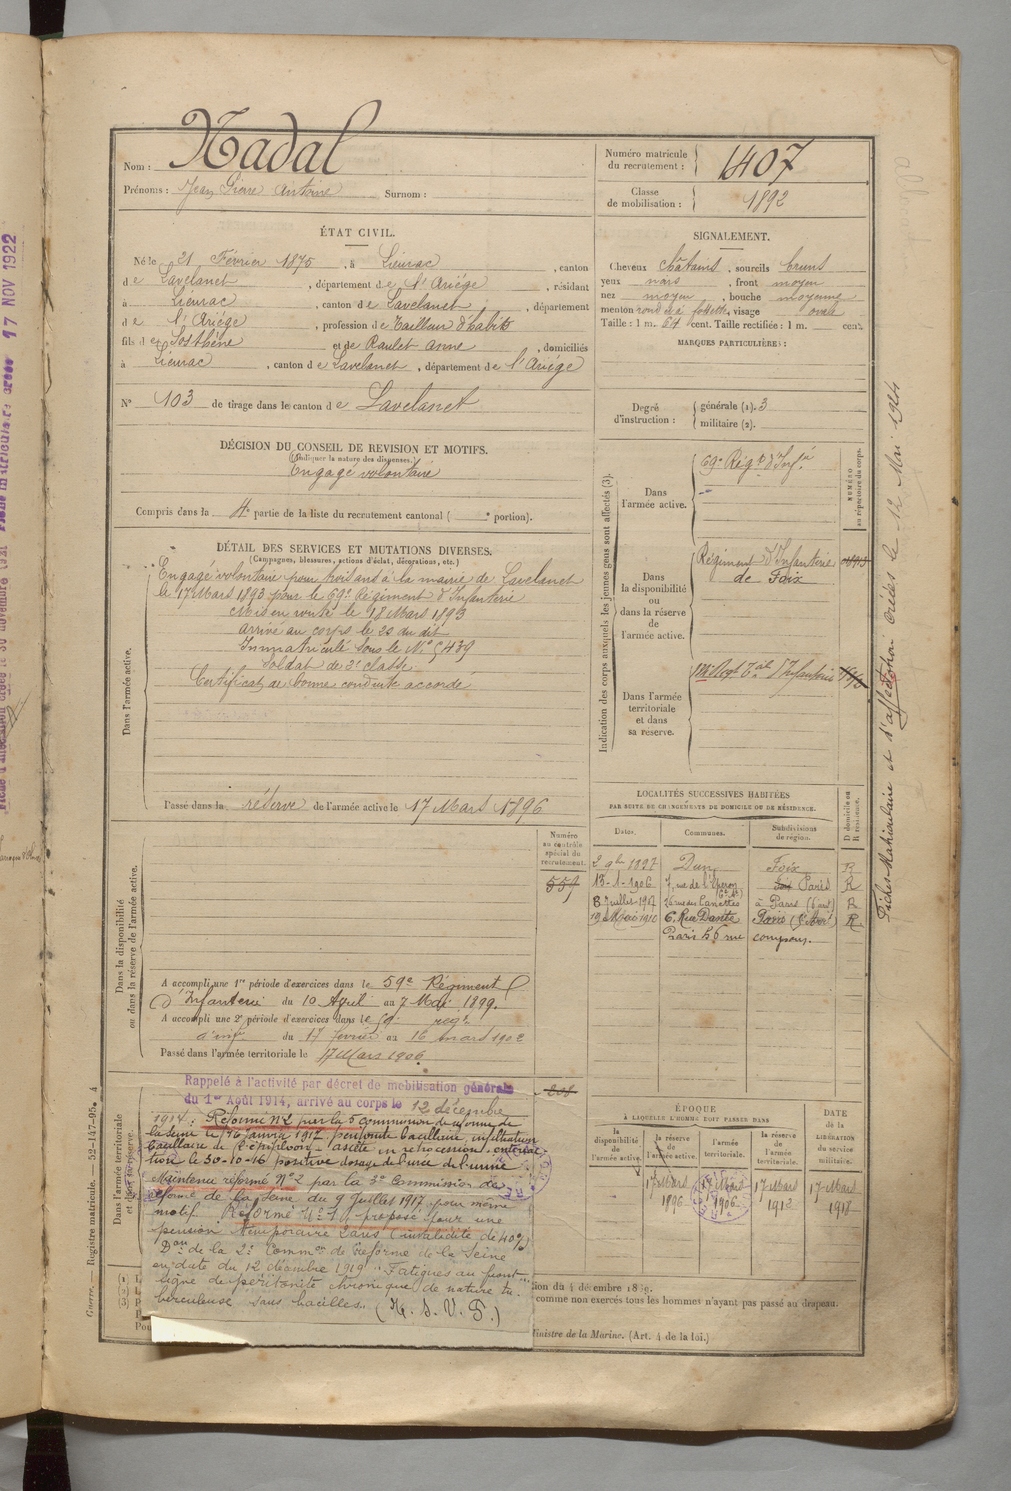 Nom : Nadal
Prénoms : Jean Pierre Antoine Surnom :
Numéro matricule du recrutement : 1407
Classe de mobilisation : 1892
ÉTAT CIVIL.
Né le 21 Février 1875, à Lieurac, canton
de Lavelanet, département de l'Ariége, résidant
à Lieurac, canton de Lavelanet, département
de l'Ariége, profession de Tailleur d'habits
fils de Sosthène et de Raulet Anne, domiciliés
à Lieurac, canton de Lavelanet, département de l'Ariége
N° 103 de tirage dans le canton de Lavelanet
SIGNALEMENT.
Cheveux châtains, sourcils bruns
yeux noirs, front moyen
nez moyen, bouche moyenne
menton rond et à fossette, visage ovale
Taille : 1 m. 64 cent. Taille rectifiée : 1 m. cent.
MARQUES PARTICULIÈRES :
Degré d'instruction : générale (1). 3
militaire (2).
DÉCISION DU CONSEIL DE REVISION ET MOTIFS.
(Indiquer la nature des dispenses.)
Engagé volontaire
Compris dans la 4e partie de la liste du recrutement cantonal ( e portion).
DÉTAIL DES SERVICES ET MUTATIONS DIVERSES.
(Campagnes, blessures, actions d'éclat, décorations, etc.)
Dans l'armée active.
Engagé volontaire pour trois ans à la mairie de Lavelanet
le 17 Mars 1893 pour le 69e Régiment d'Infanterie
Mis en route le 18 Mars 1893
Arrivé au corps le 20 du dit
Immatriculé sous le N° 5439
Soldat de 2e classe
Certificat de bonne conduite accordé
Passé dans la réserve de l'armée active le 17 Mars 1896
Indication des corps auxquels les jeunes gens sont affectés (3).
NUMÉRO au répertoire du corps.
Dans l'armée active.
69e Régt d'Infie
Dans la disponibilité ou dans la réserve de l'armée active.
Régiment d'Infanterie
de Foix
Dans l'armée territoriale et dans sa réserve.
Régt Tal d'Infanterie
LOCALITÉS SUCCESSIVES HABITÉES
PAR SUITE DE CHANGEMENTS DE DOMICILE OU DE RÉSIDENCE.
Dates. Communes. Subdivisions de région. D domicile ou R résidence.
2 9bre 1897 Dun Foix R
13-1-1906 7, rue de l'Éperon Paris R
8 Juillet 1907 rue des Canettes à Paris (6 art) R
1910 6, Rue Dante Paris R
Dans la disponibilité ou dans la réserve de l'armée active.
Numéro au contrôle spécial du recrutement.
559
A accompli une 1re période d'exercices dans le 59e Régiment
d'Infanterie du 10 Avril au 7 Mai 1899.
A accompli une 2e période d'exercices dans le 59e regt
d'inf. du 17 février au 16 mars 1902
Passé dans l'armée territoriale le 17 Mars 1906
Dans l'armée territoriale et dans sa réserve.
Rappelé à l'activité par décret de mobilisation générale
du 1er Août 1914, arrivé au corps le 12 décembre
1914. Réformé n°2 par la 5e commission de réforme de
la Seine le 16 Janvier 1917, péritonite bacillaire, infiltration
bacillaire de l'épiploon - ascite en rétrocession.
le 30-10-16 positive dosage de l'urée de l'urine
Maintenu réformé N°2 par la 3e Commission de
réforme de la Seine du 9 Juillet 1917, pour même
motif. Réformé N°1, proposé pour une
pension temporaire 2 ans (invalidité de 40%)
Don de la 2e Common de Réforme de la Seine
en date du 12 décembre 1919 "Fatigues au front
signe de péritonite chronique de nature tu-
berculeuse sans bacilles.
ÉPOQUE
À LAQUELLE L'HOMME DOIT PASSER DANS
la disponibilité de l'armée active. la réserve de l'armée active. l'armée territoriale. la réserve de l'armée territoriale.
DATE de la LIBÉRATION du service militaire.
17 Mars 1896 17 Mars 1906 17 Mars 1912 17 Mars 1918
comme non exercés tous les hommes n'ayant pas passé au drapeau.
Ministre de la Marine. (Art. 4 de la loi.)
Guerre. — Registre matricule. — 52-147-95. 4
Fiches Matriculaire et d'affectation créées le 12 Mai 1924
17 NOV 1922